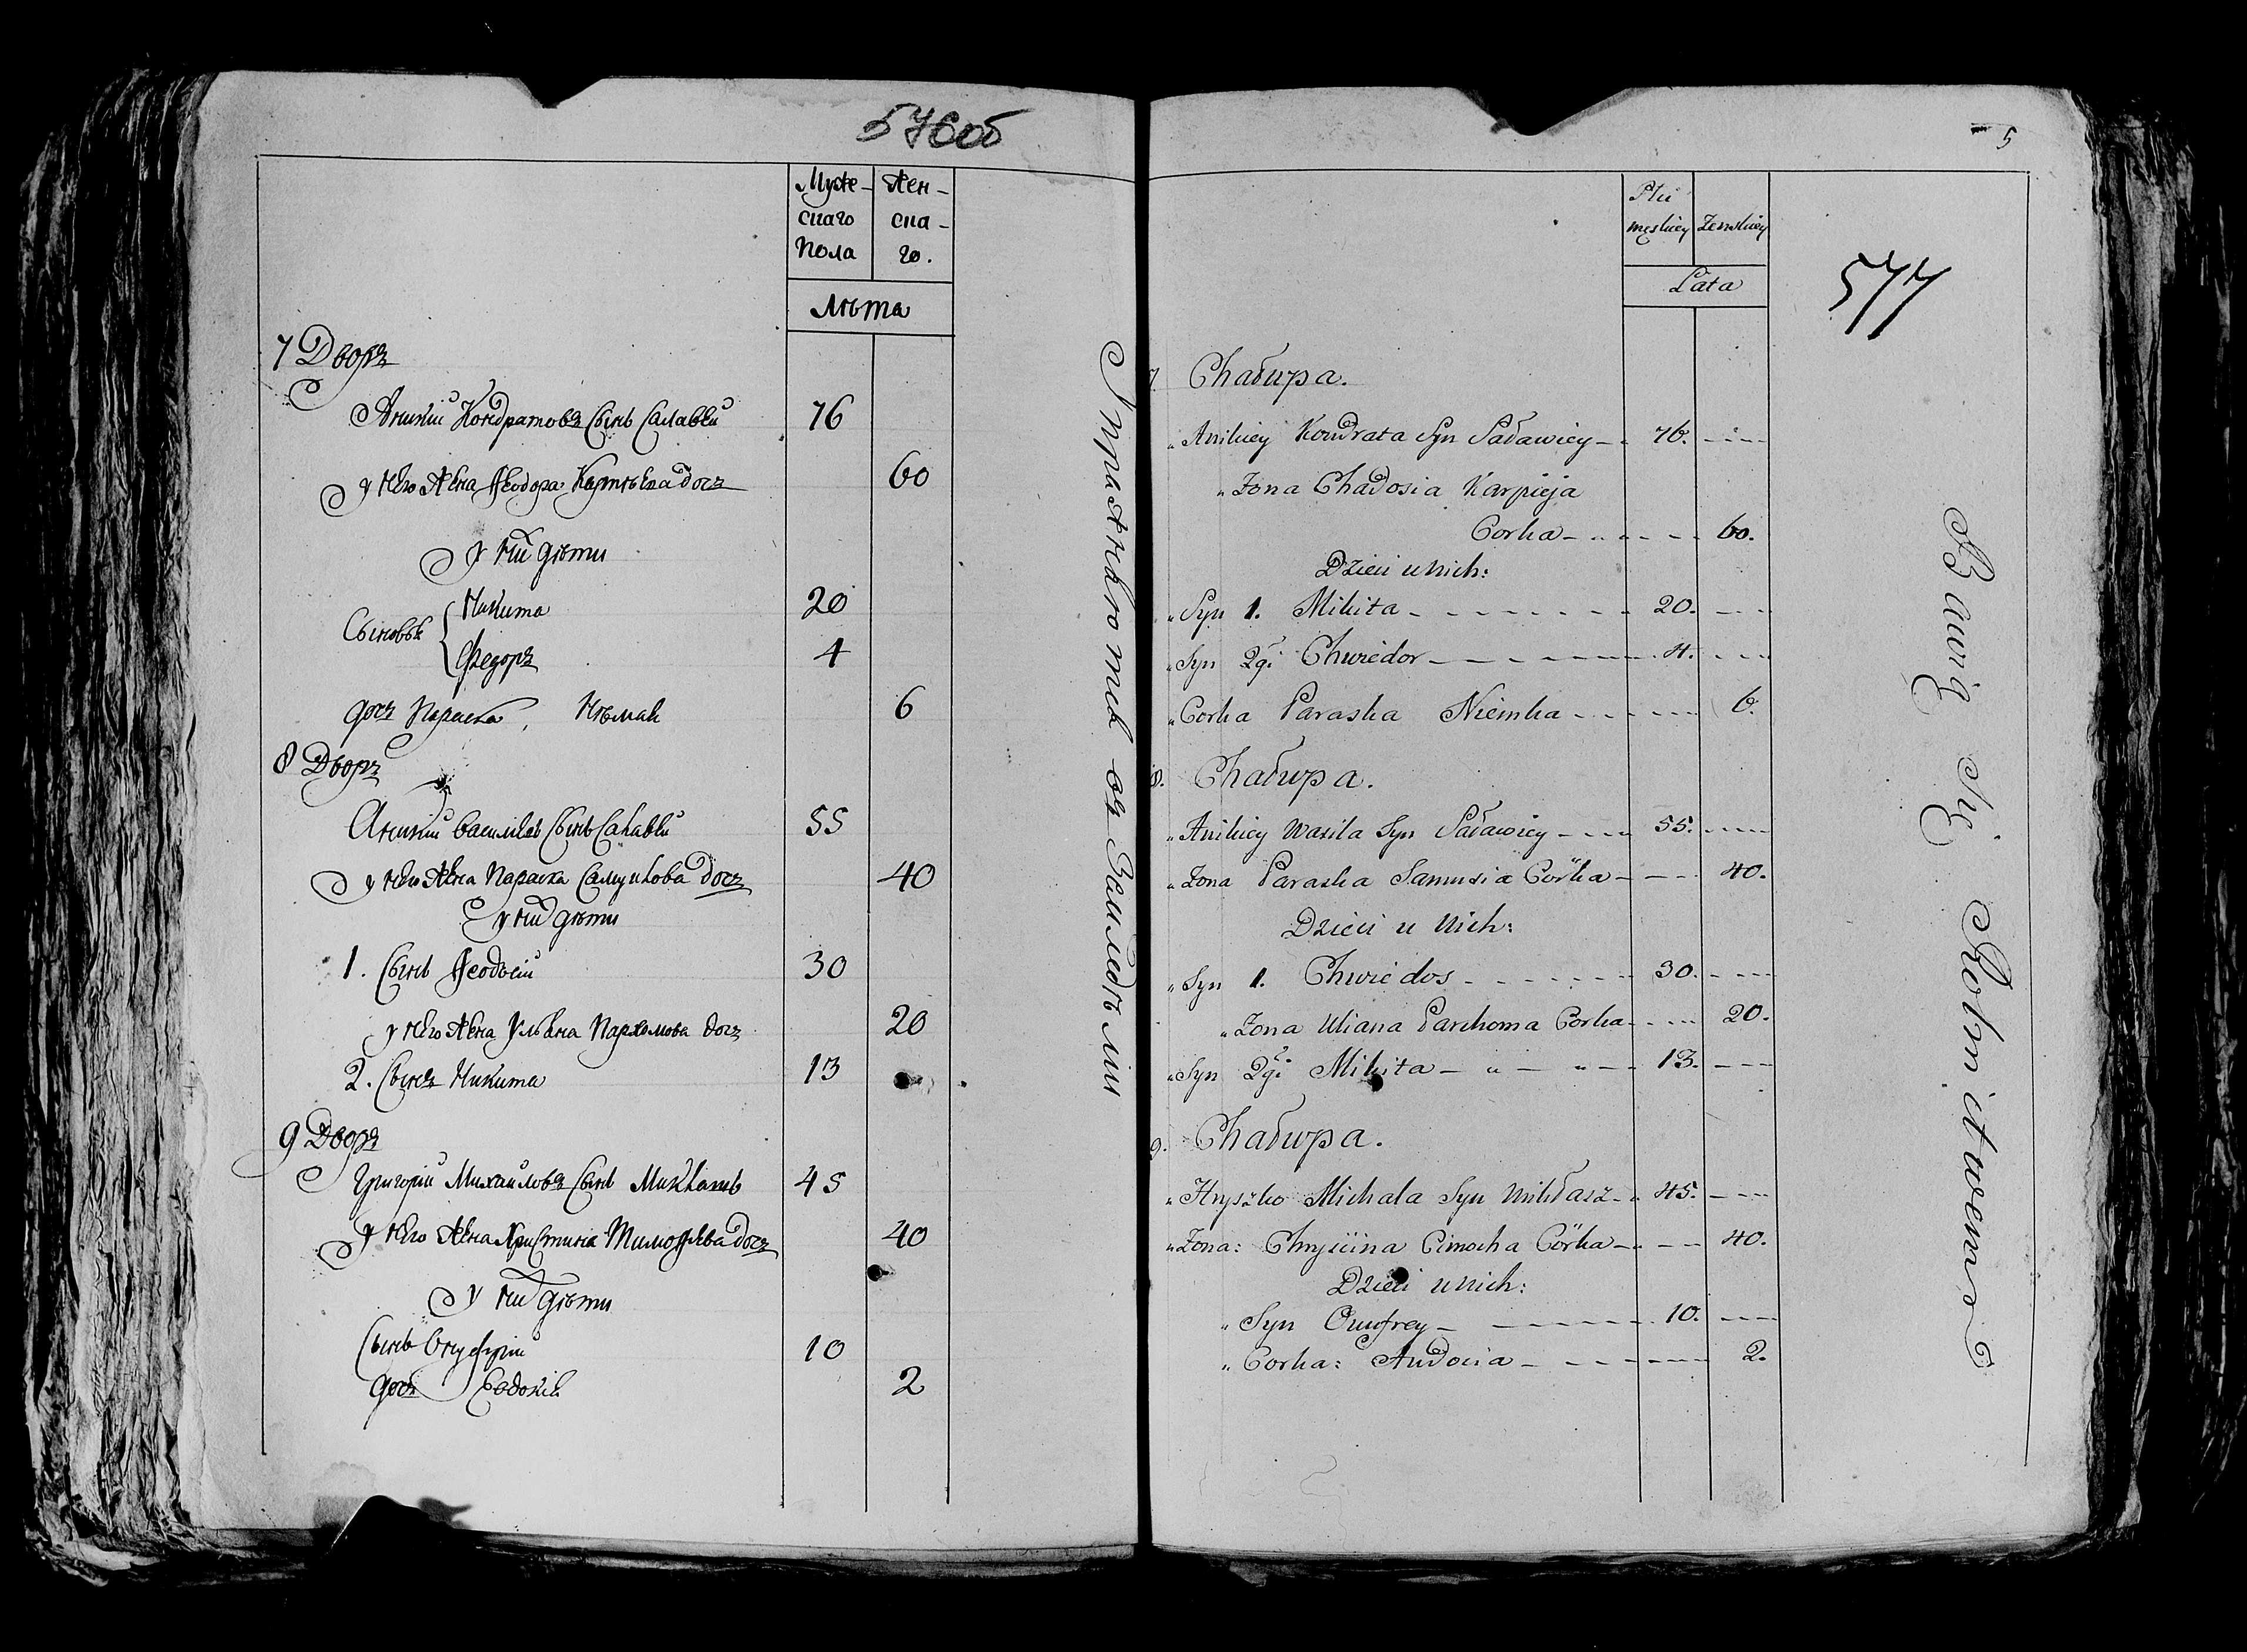 576об
Муже-
скаго
Пола
Жен-
ска-
го.
Лѣта
7 Дворъ
Аникій Кондратовъ Сынъ Салавей 76
у него Жена Ѳеодора Карпѣева дочъ 60
у ни дѣти
Сыновья Никита 20
Федоръ 4
дочъ Параска, Нѣмая 6
8 Дворъ
Аникій Василіевъ Сынъ Салавей 55
у него Жена Параска Самуилова дочъ 40
у ни дѣти
1. Сынъ Ѳеодосій 30
у него Жена Ульяна Пархомова дочъ 20
2. Сынъ Никита 13
9 Дворъ
Григорій Михаиловъ Сынъ Миклашъ 45
у него Жена Христина Тимоѳѣева дочъ 40
у ни дѣти
Сынъ Онуфрій 10
дочъ Евдокія 2
Упражняютев въ Земледѣліи
5
577
Płci
męskiey
Żenskiey
Lata
7. Chałupa.
Anikiey Kondrata Syn Saławiey 76.
Żona Chadosia Karpieja
Corka 60.
Dzieci u nich:
Syn 1. Mikita 20.
Syn 2gi Chwiedor 4.
Corka Paraska Niemka 6.
8. Chałupa.
Anikiey Wasila Syn Saławiey 55.
Żona Paraska Samusia Córka 40.
Dzieci u nich:
Syn 1. Chwiedos 30.
Żona Uliana Parchoma Corka 20.
Syn 2gi Mikita 13.
9. Chałupa.
Hryszko Michala Syn Mikłasz 45.
Żona: Chryscina Cimocha Córka 40.
Dzieci u nich:
Syn Onufrey 10.
Corka: Audocia 2.
Bawię Się Rolnictwem